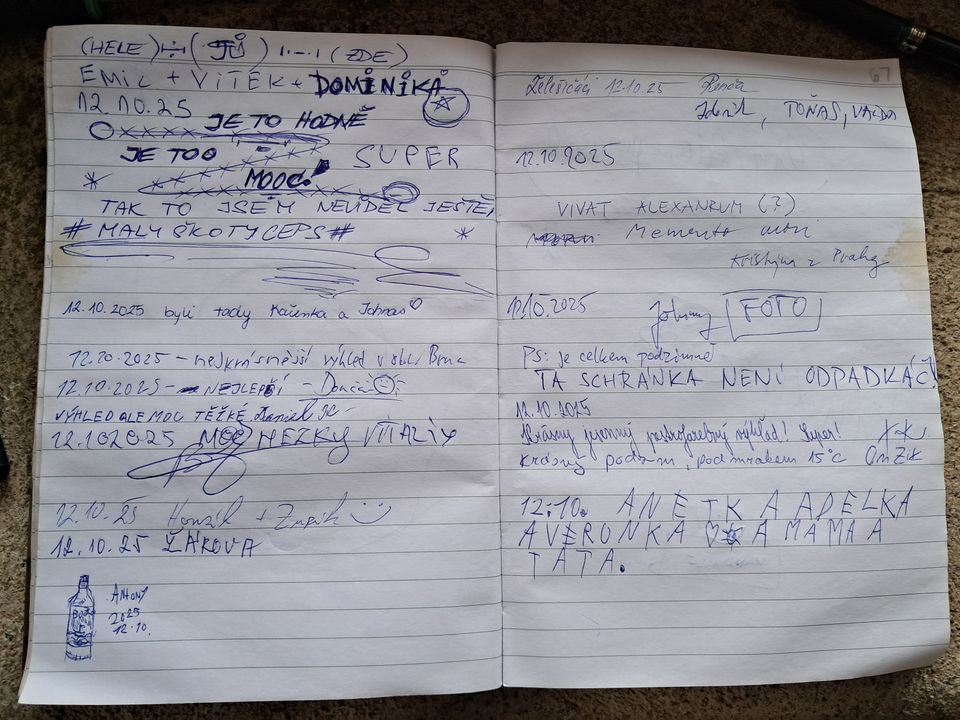 (HELE) (TU) (ZDE)
EMIL + VÍTEK + DOMINIKA
12.10.25
JE TO HODNĚ
JE TOO SUPER
MOOC!
TAK TO JSEM NEVIDĚL JEŠTĚ,
#MALY ŠKOTY CEPS#
12.10.2025 byli tady Kačenka a Johnas
12.10.2025 – nejkrásnější výhled v okolí Brna
12.10.2025 – NEJLEPŠÍ –
VÝHLED ALE MOC TĚŽKÉ Daniel
12.102025 MOC HEZKY
12.10.25 Honzík +
12.10.25 ŽÁROVA
ANTONY
2025
12.10.
67
Želešičáci 12.10.25 Renča
TOŇAS,
12.10.2025
VIVAT ALEXANRUM (?)
Memento mori
Kristýna z Prahy
12.10.2025 Johnny FOTO
PS: je celkem podzimně
TA SCHRÁNKA NENÍ ODPADKÁČ!
12.10.2025
Krásný jesenný pestrofarebný výhľad! Super!
Krásný podzim, pod mrakem 15°C
12.10. ANETKA ADELKA
A VERONKA A MÁMA A
TÁTA.